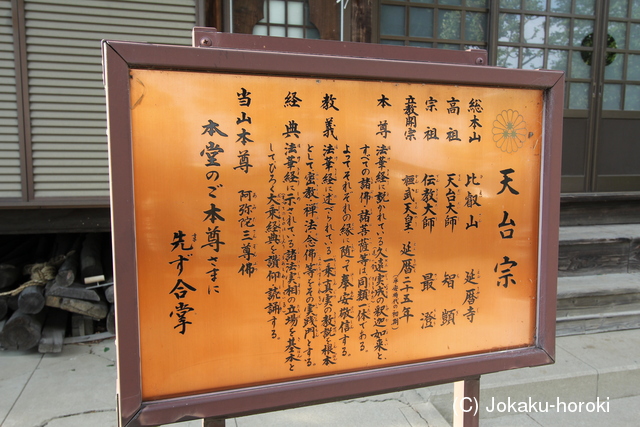 天台宗
総本山 比叡山 延暦寺
高祖 天台大師 智顗
宗祖 伝教大師 最澄
立教開宗 桓武天皇 延暦二十五年
(平安時代の初期)
本尊 法華経に説かれている久遠実成の釈迦如来と
すべての諸佛・諸菩薩等は同体である。
よってそれぞれの縁に随って奉安敬信する。
教義 法華経に述べられている一乗真実の教説を根本
として密教・禅法・念佛等をその実践門とする。
経典 法華経に示されている諸法実相の立場を基本と
してひろく大乗経典を讃仰読誦する。
当山本尊 阿弥陀三尊佛
本堂のご本尊さまに
先ず合掌
(C) Jokaku-horoki